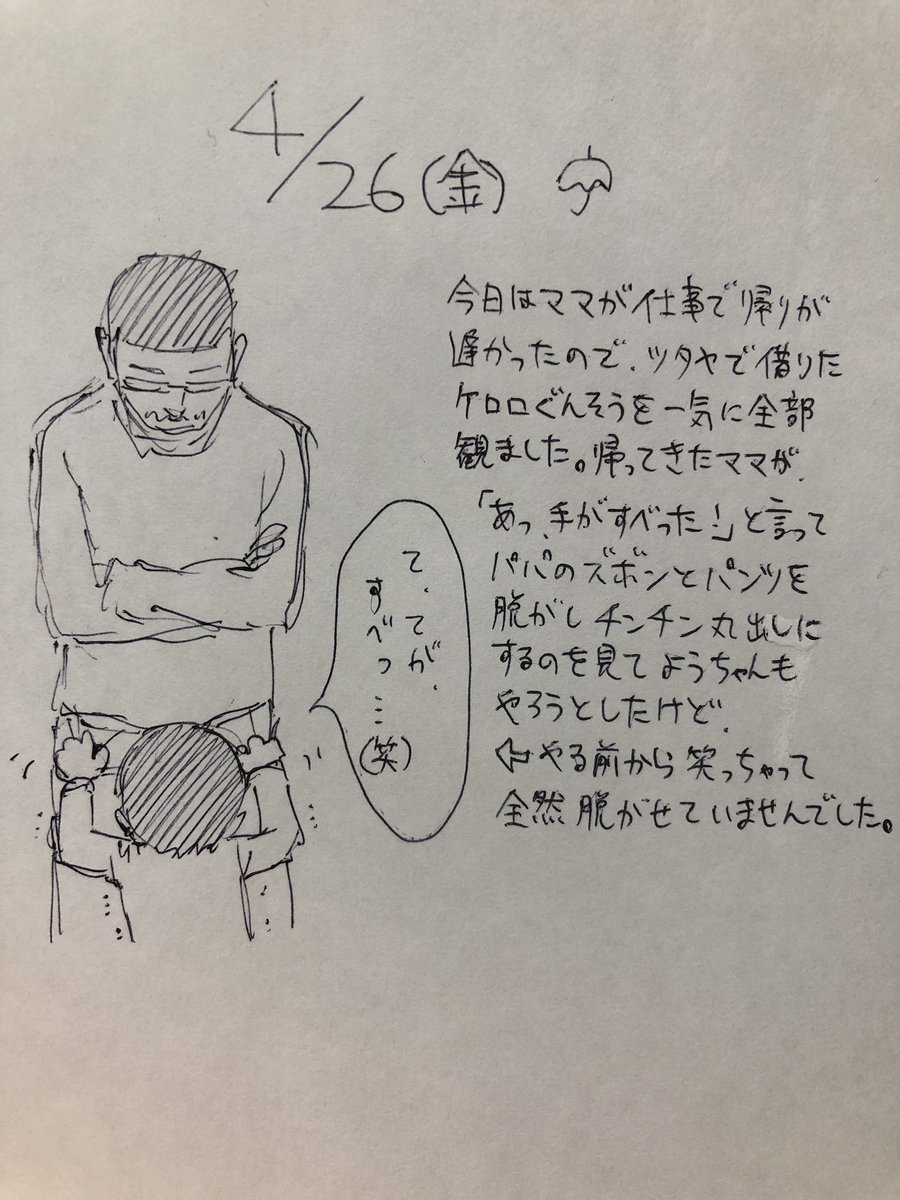 4/26(金)
今日はママが仕事で帰りが
遅かったので、ツタヤで借りた
ケロロぐんそうを一気に全部
観ました。帰ってきたママが、
「あっ、手がすべった!」と言って
パパのズボンとパンツを
脱がしチンチン丸出しに
するのを見てようちゃんも
やろうとしたけど、
⇦やる前から笑っちゃって
全然脱がせていませんでした。
て、てが、
すべっ…
(笑)